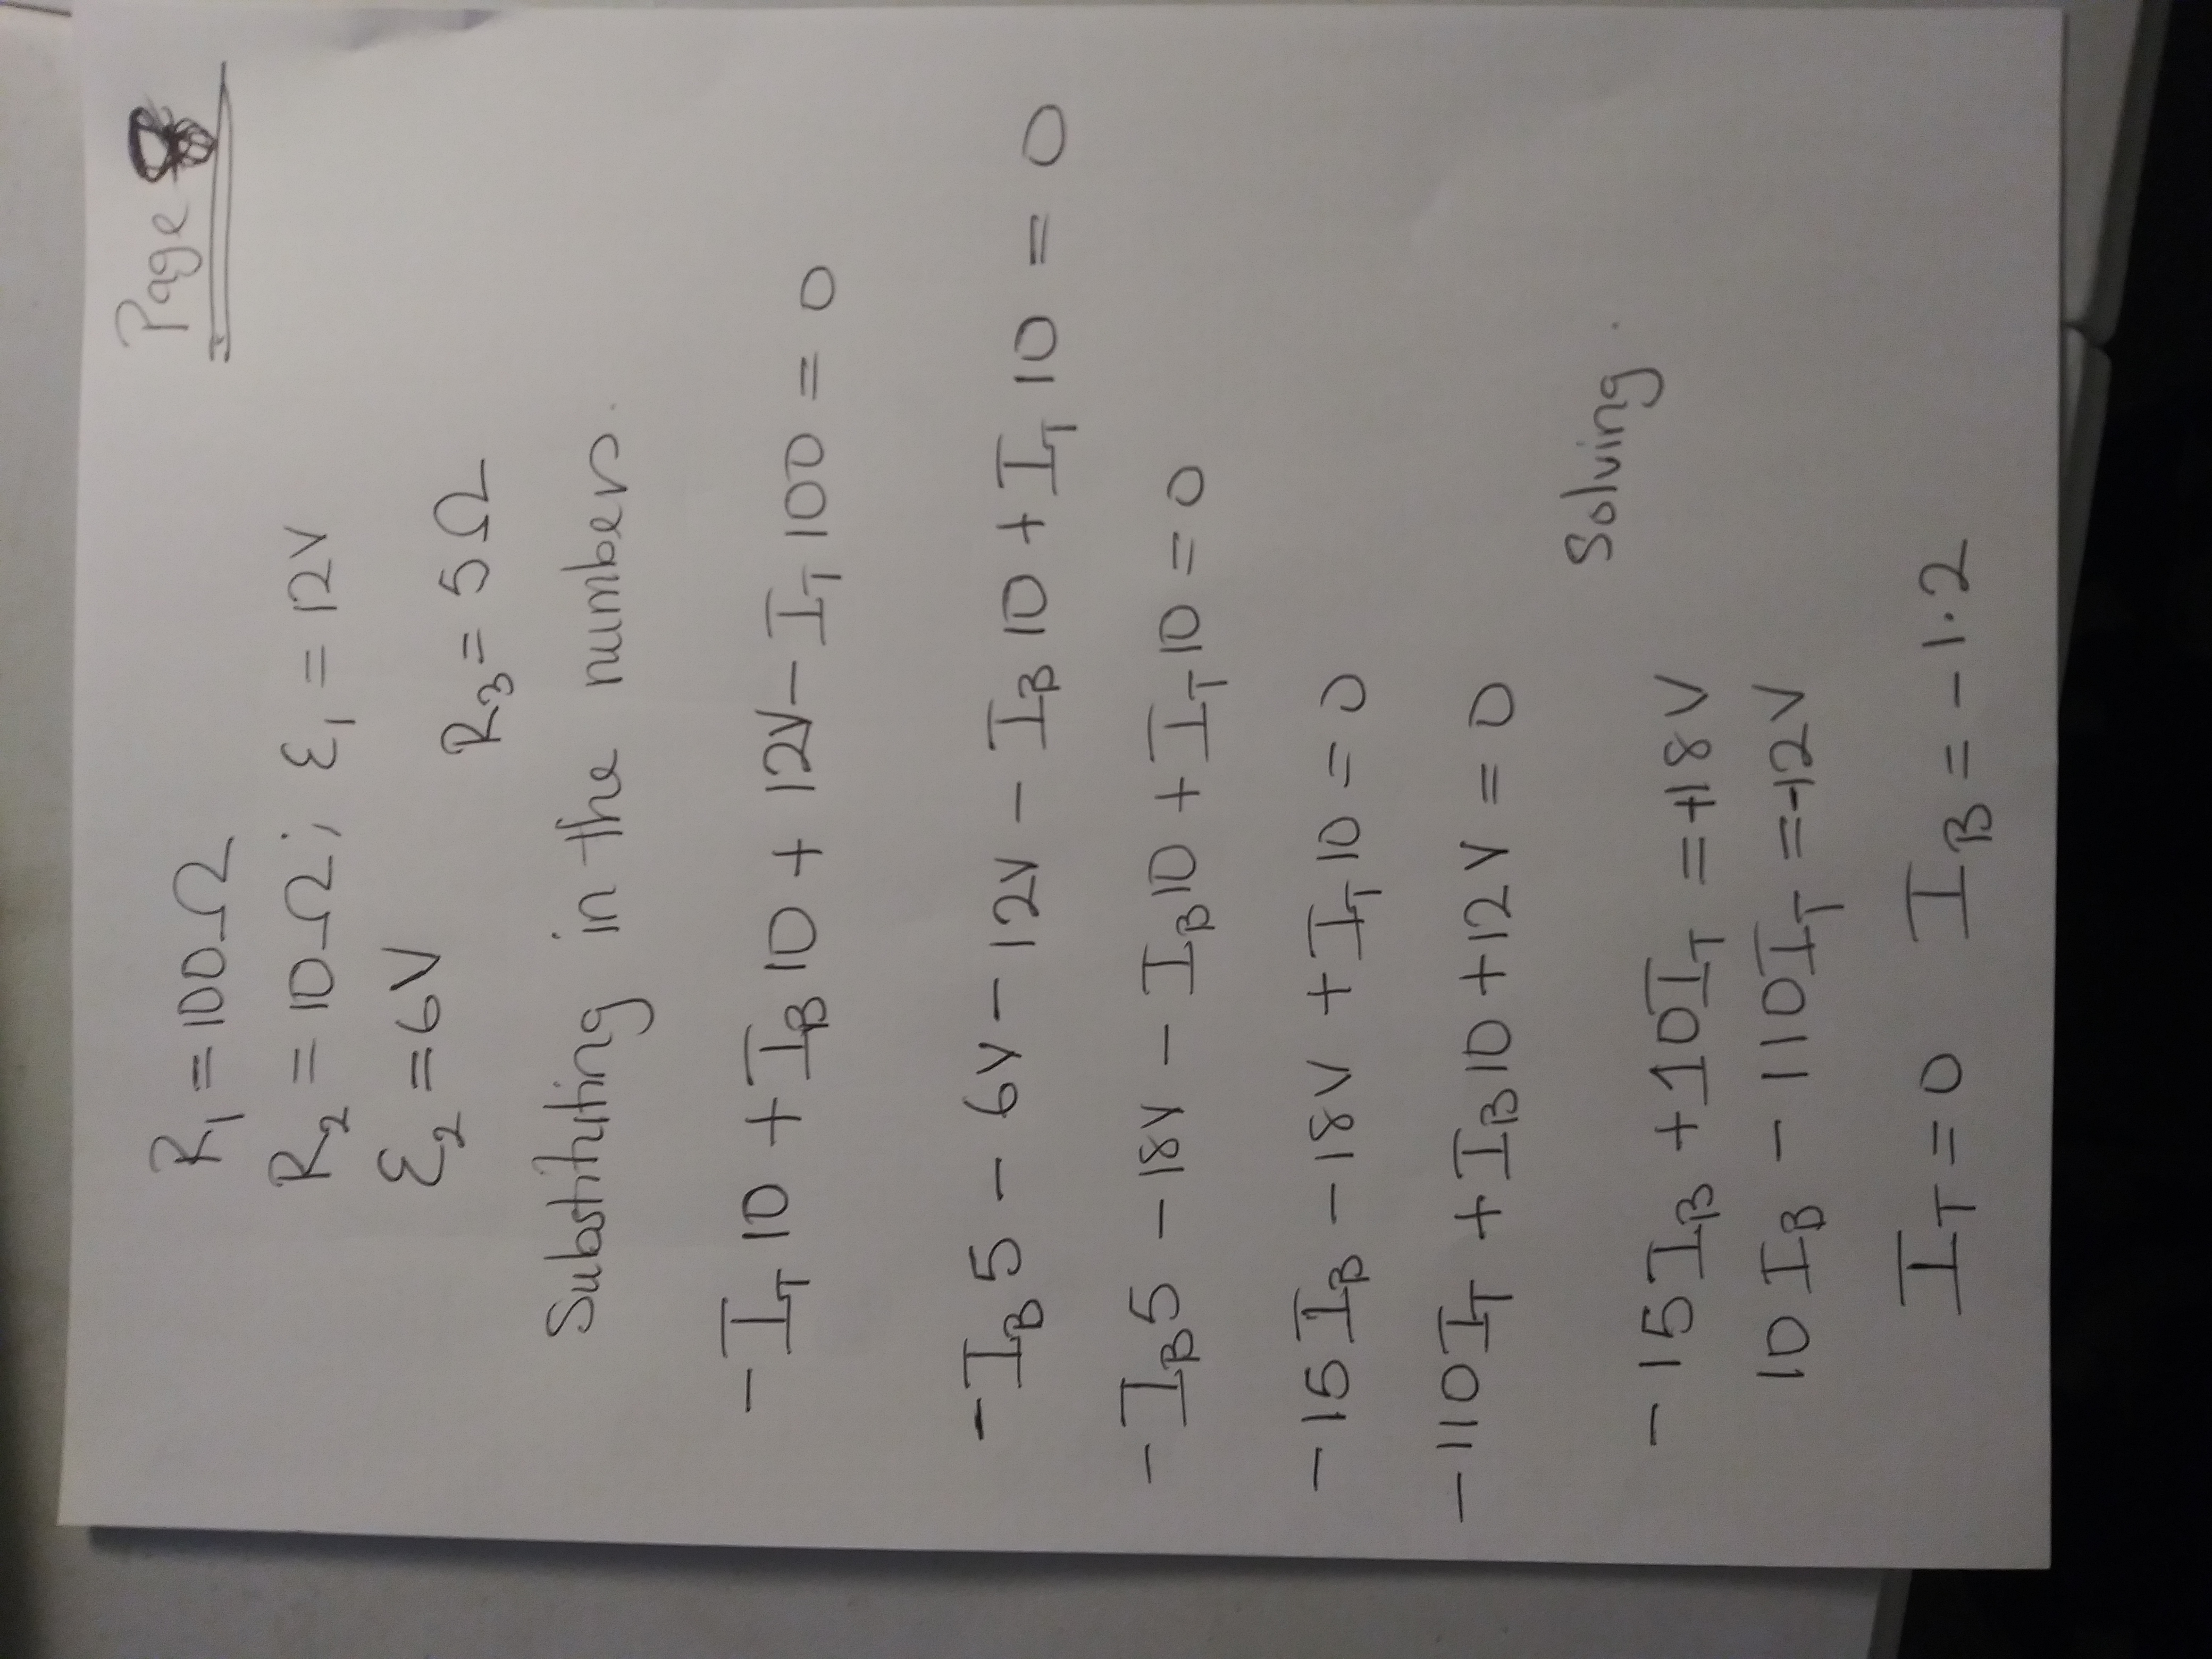 Page
R₁ = 100Ω
R₂ = 10Ω; ℰ₁ = 12V
ℰ₂ = 6V
R₃ = 5Ω
Substituting in the numbers.
-I_T 10 + I_B 10 + 12V - I_T 100 = 0
-I_B 5 - 6V - 12V - I_B 10 + I_T 10 = 0
-I_B 5 - 18V - I_B 10 + I_T 10 = 0
-15 I_B - 18V + I_T 10 = 0
-110 I_T + I_B 10 + 12V = 0
Solving.
-15 I_B + 10 I_T = +18V
10 I_B - 110 I_T = -12V
I_T = 0 I_B = -1.2